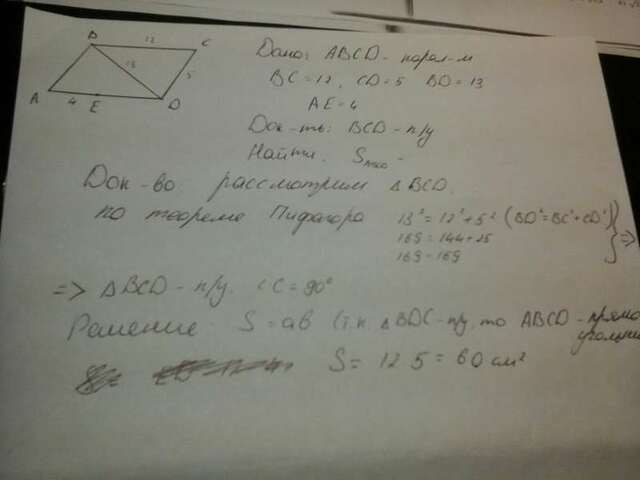 B 12 C
13 5
A 4 E D
Дано: ABCD - парал-м
BC = 12, CD = 5 BD = 13
AE = 4
Док-ть: BCD - п/у
Найти:
Док-во рассмотрим △BCD.
по теореме Пифагора 13² = 12² + 5² (BD² = BC² + CD²)
169 = 144 + 25
169 = 169 } =>
=> △BCD - п/у. ∠C = 90°
Решение. S = ab (т.к. △BDC - п/у, то ABCD - прямо
угольник
S = 12 5 = 60 см²